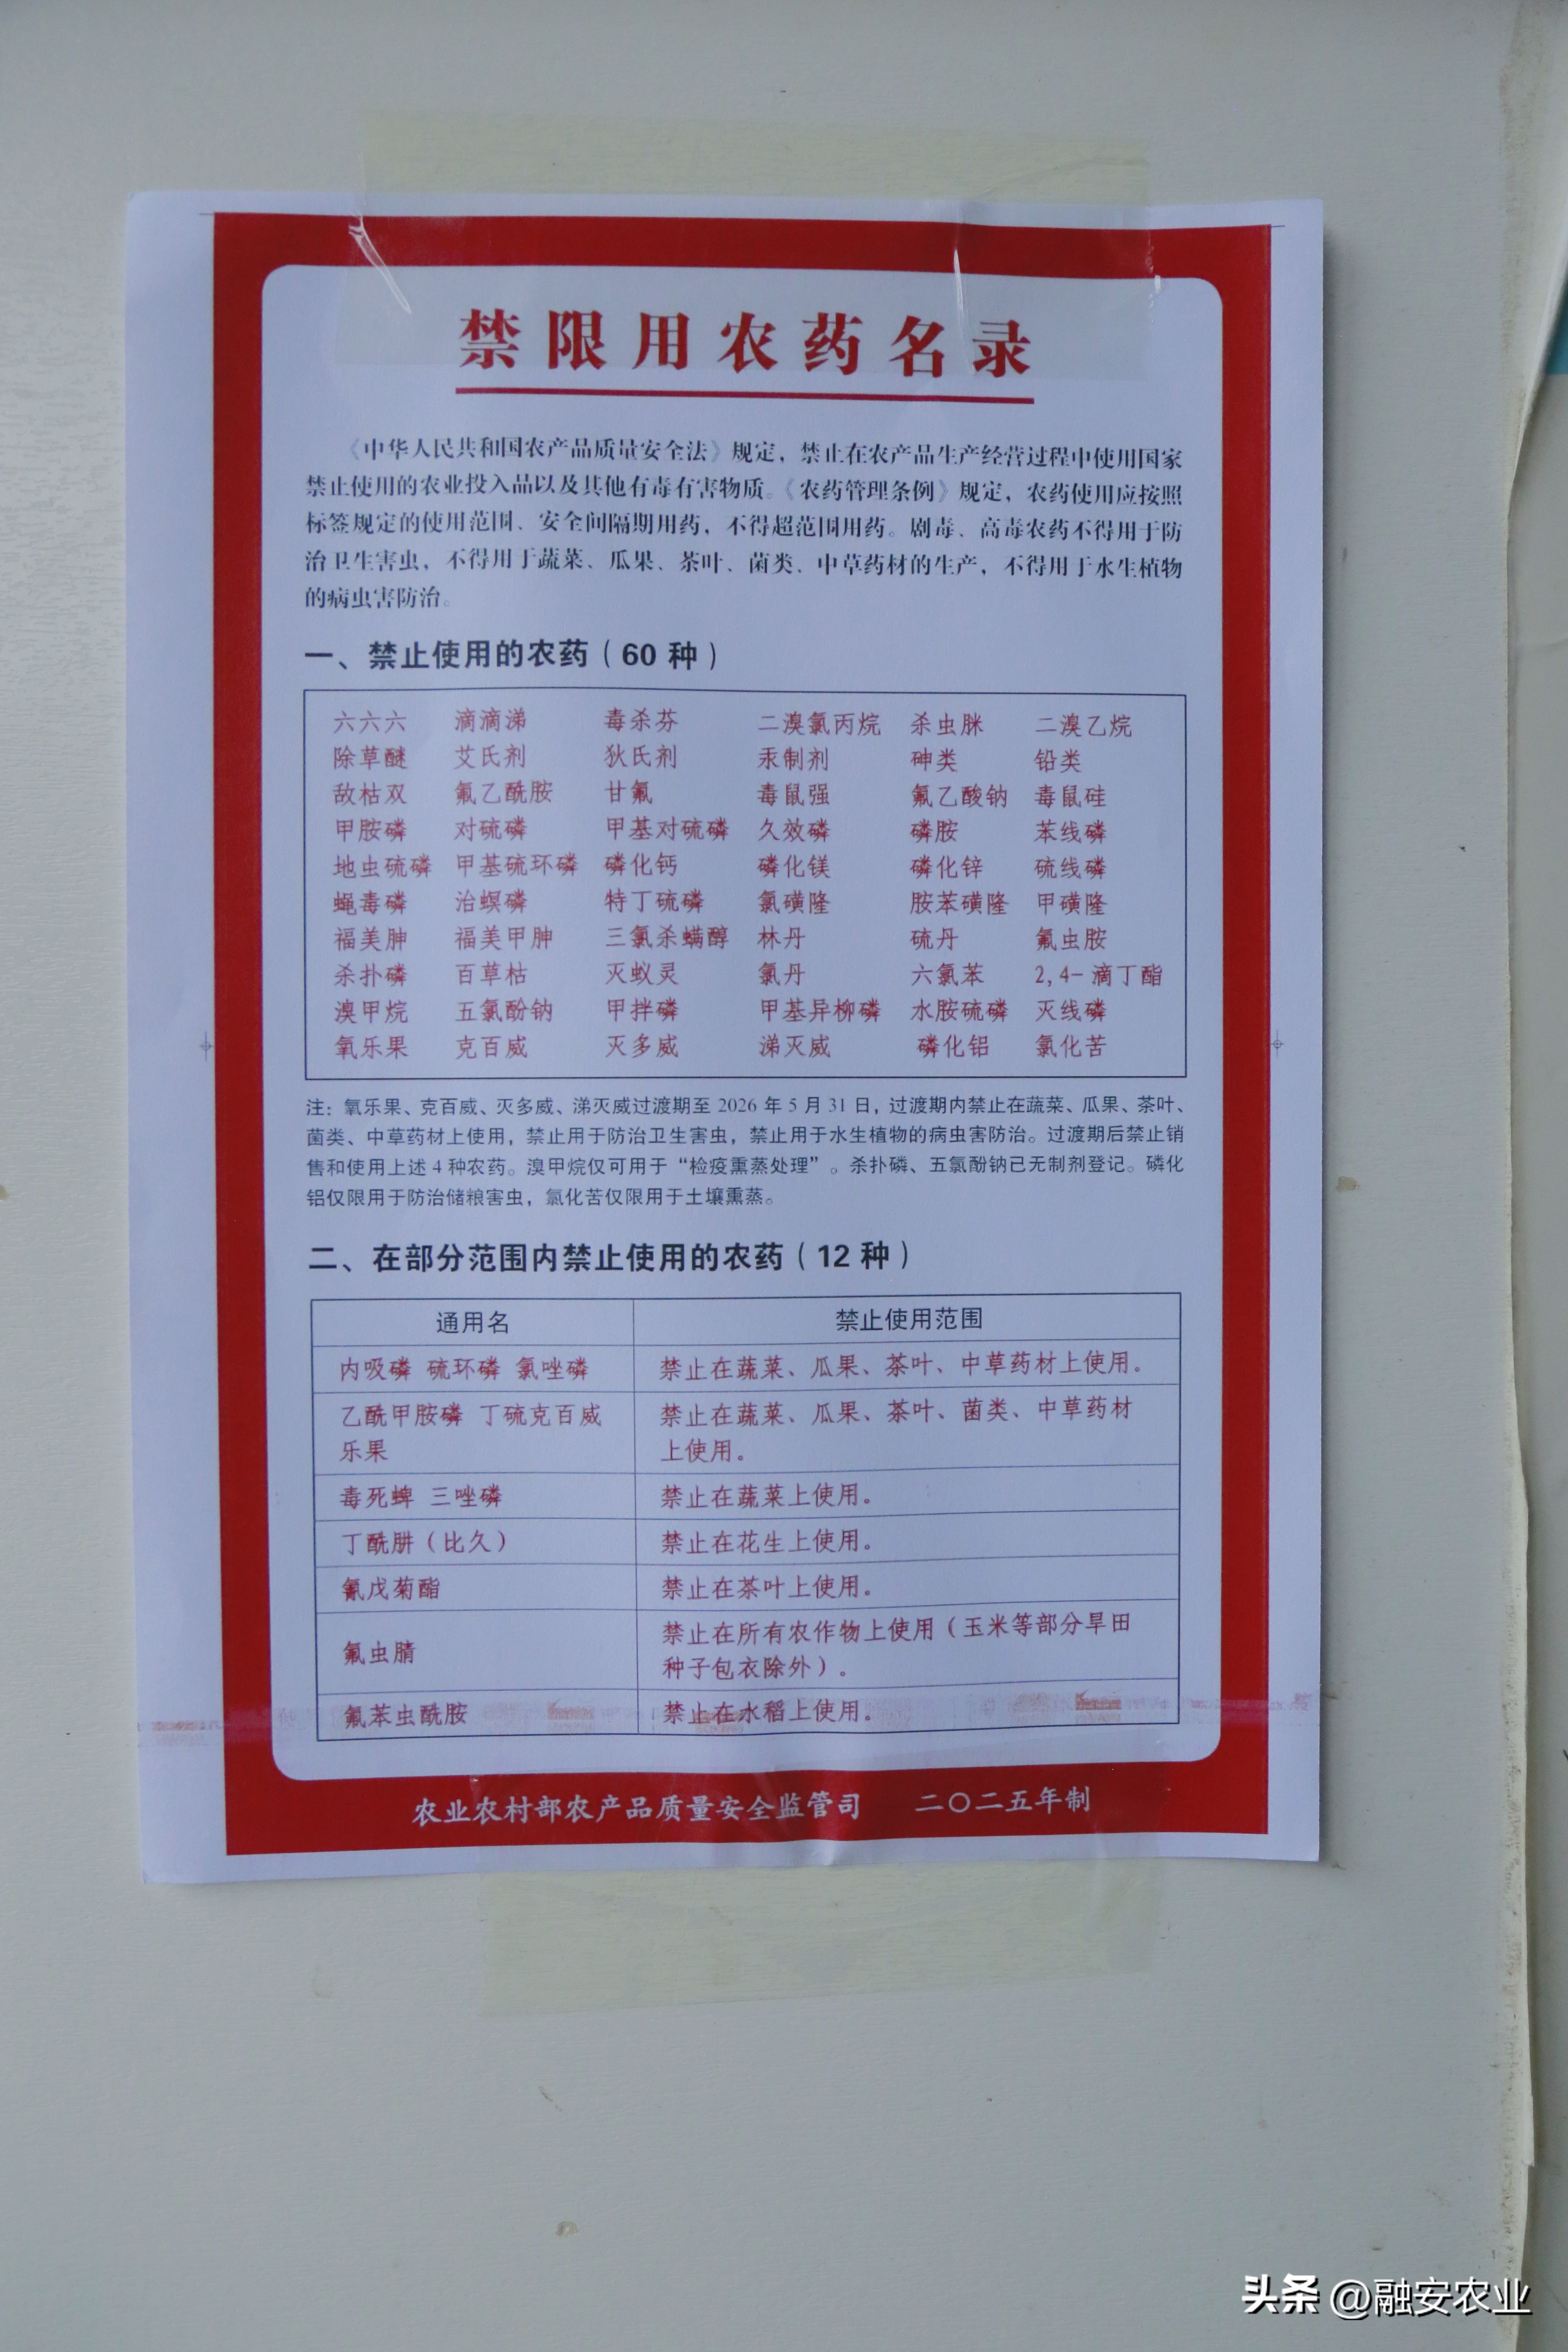 禁限用农药名录
《中华人民共和国农产品质量安全法》规定，禁止在农产品生产经营过程中使用国家
禁止使用的农业投入品以及其他有毒有害物质。《农药管理条例》规定，农药使用应按照
标签规定的使用范围、安全间隔期用药，不得超范围用药。剧毒、高毒农药不得用于防
治卫生害虫，不得用于蔬菜、瓜果、茶叶、菌类、中草药材的生产，不得用于水生植物
的病虫害防治。
一、禁止使用的农药（60 种）
六六六 滴滴涕 毒杀芬 二溴氯丙烷 杀虫脒 二溴乙烷
除草醚 艾氏剂 狄氏剂 汞制剂 砷类 铅类
敌枯双 氟乙酰胺 甘氟 毒鼠强 氟乙酸钠 毒鼠硅
甲胺磷 对硫磷 甲基对硫磷 久效磷 磷胺 苯线磷
地虫硫磷 甲基硫环磷 磷化钙 磷化镁 磷化锌 硫线磷
蝇毒磷 治螟磷 特丁硫磷 氯磺隆 胺苯磺隆 甲磺隆
福美胂 福美甲胂 三氯杀螨醇 林丹 硫丹 氟虫胺
杀扑磷 百草枯 灭蚁灵 氯丹 六氯苯 2,4-滴丁酯
溴甲烷 五氯酚钠 甲拌磷 甲基异柳磷 水胺硫磷 灭线磷
氧乐果 克百威 灭多威 涕灭威 磷化铝 氯化苦
注：氧乐果、克百威、灭多威、涕灭威过渡期至 2026 年 5 月 31 日，过渡期内禁止在蔬菜、瓜果、茶叶、
菌类、中草药材上使用，禁止用于防治卫生害虫，禁止用于水生植物的病虫害防治。过渡期后禁止销
售和使用上述 4 种农药。溴甲烷仅可用于“检疫熏蒸处理”。杀扑磷、五氯酚钠已无制剂登记。磷化
铝仅限用于防治储粮害虫，氯化苦仅限用于土壤熏蒸。
二、在部分范围内禁止使用的农药（12 种）
通用名 禁止使用范围
内吸磷 硫环磷 氯唑磷 禁止在蔬菜、瓜果、茶叶、中草药材上使用。
乙酰甲胺磷 丁硫克百威 禁止在蔬菜、瓜果、茶叶、菌类、中草药材
乐果 上使用。
毒死蜱 三唑磷 禁止在蔬菜上使用。
丁酰肼（比久） 禁止在花生上使用。
氰戊菊酯 禁止在茶叶上使用。
氟虫腈 禁止在所有农作物上使用（玉米等部分旱田
种子包衣除外）。
氟苯虫酰胺 禁止在水稻上使用。
农业农村部农产品质量安全监管司 二〇二五年制
头条 @融安农业